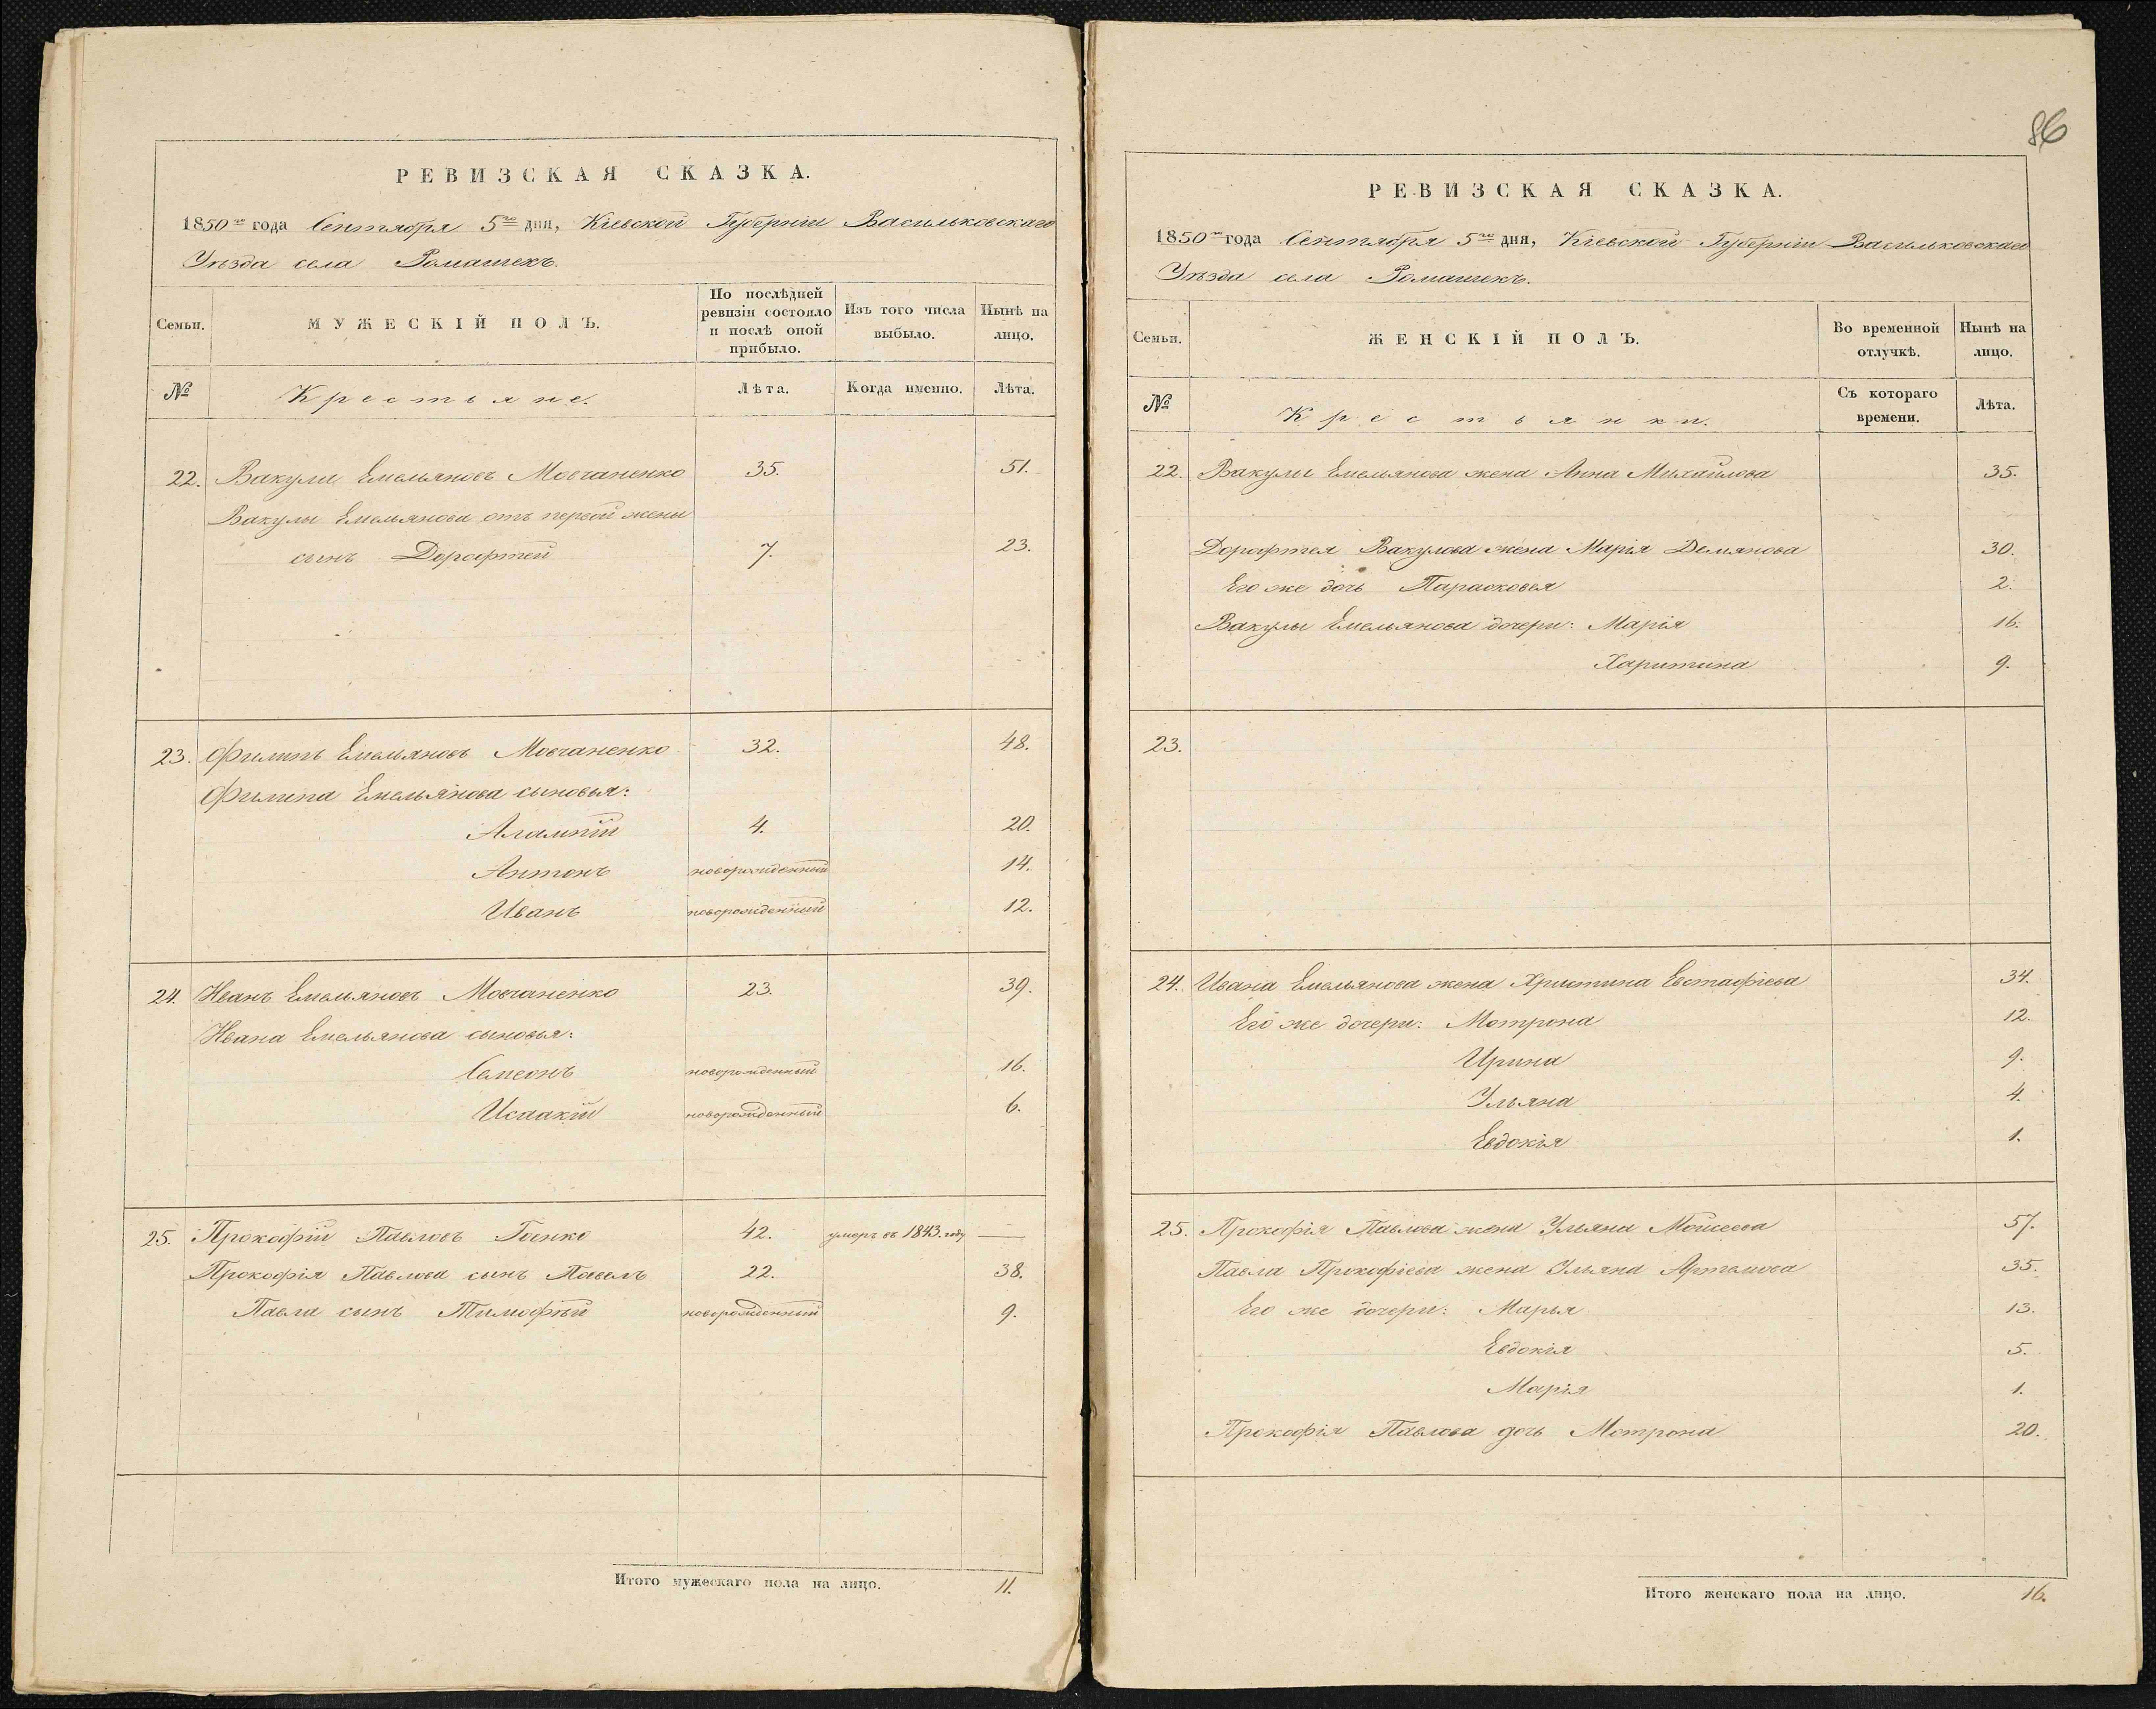 РЕВИЗСКАЯ СКАЗКА.
1850го года Сентября 5го дня, Кіевской Губерніи Васильковскаго
Уѣзда села Ромашекъ.
Семьи.
МУЖЕСКІЙ ПОЛЪ.
По послѣдней ревизіи состояло и послѣ оной прибыло.
Изъ того числа выбыло.
Нынѣ на лицо.
№
Крестьяне.
Лѣта.
Когда именно.
Лѣта.
22. Вакулы Емельяновъ Мовчаненко 35. 51.
Вакулы Емельянова отъ первой жены
сынъ Дорофтей 7. 23.
23. Филипъ Емельяновъ Мовчаненко 32. 48.
Филипа Емельянова сыновья:
Алампій 4. 20.
Антонъ новорожденный 14.
Иванъ новорожденный 12.
24. Иванъ Емельяновъ Мовчаненко 23. 39.
Ивана Емельянова сыновья:
Семеонъ новорожденный 16.
Исаакій новорожденный 6.
25. Прокофій Павловъ 42. умеръ въ 1843. году —
Прокофія Павлова сынъ Павелъ 22. 38.
Павла сынъ Тимофѣй новорожденный 9.
Итого мужескаго пола на лицо. 11.
86
РЕВИЗСКАЯ СКАЗКА.
1850го года Сентября 5го дня, Кіевской Губерніи Васильковскаго
Уѣзда села Ромашекъ.
Семьи.
ЖЕНСКІЙ ПОЛЪ.
Во временной отлучкѣ.
Нынѣ на лицо.
№
Крестьянки.
Съ котораго времени.
Лѣта.
22. Вакулы Емельянова жена Анна Михайлова 35.
Дорофтея Вакулова жена Марія Демянова 30.
Его же дочь Парасковья 2.
Вакулы Емельянова дочери: Марія 16.
Харитина 9.
23.
24. Ивана Емельянова жена Христина Евстафіева 34.
Его же дочери: Мотрона 12.
Ирина 9.
Ульяна 4.
Евдокія 1.
25. Прокофія Павлова жена Ульяна Моисеева 57.
Павла Прокофіева жена Ульяна Артемова 35.
Его же дочери: Марья 13.
Евдокія 5.
Марія 1.
Прокофія Павлова дочь Мотрона 20.
Итого женскаго пола на лицо. 16.